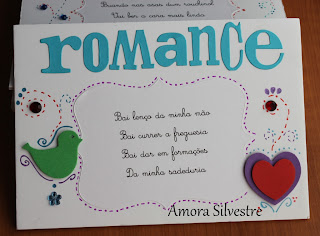 Buscando nos seus dum rouxinol
Vai ber a cara mais linda
romance
Bai lenço da minha não
Bai currer a freguesia
Bai dar em formações
Da minha sadeduria
Amora Silvestre